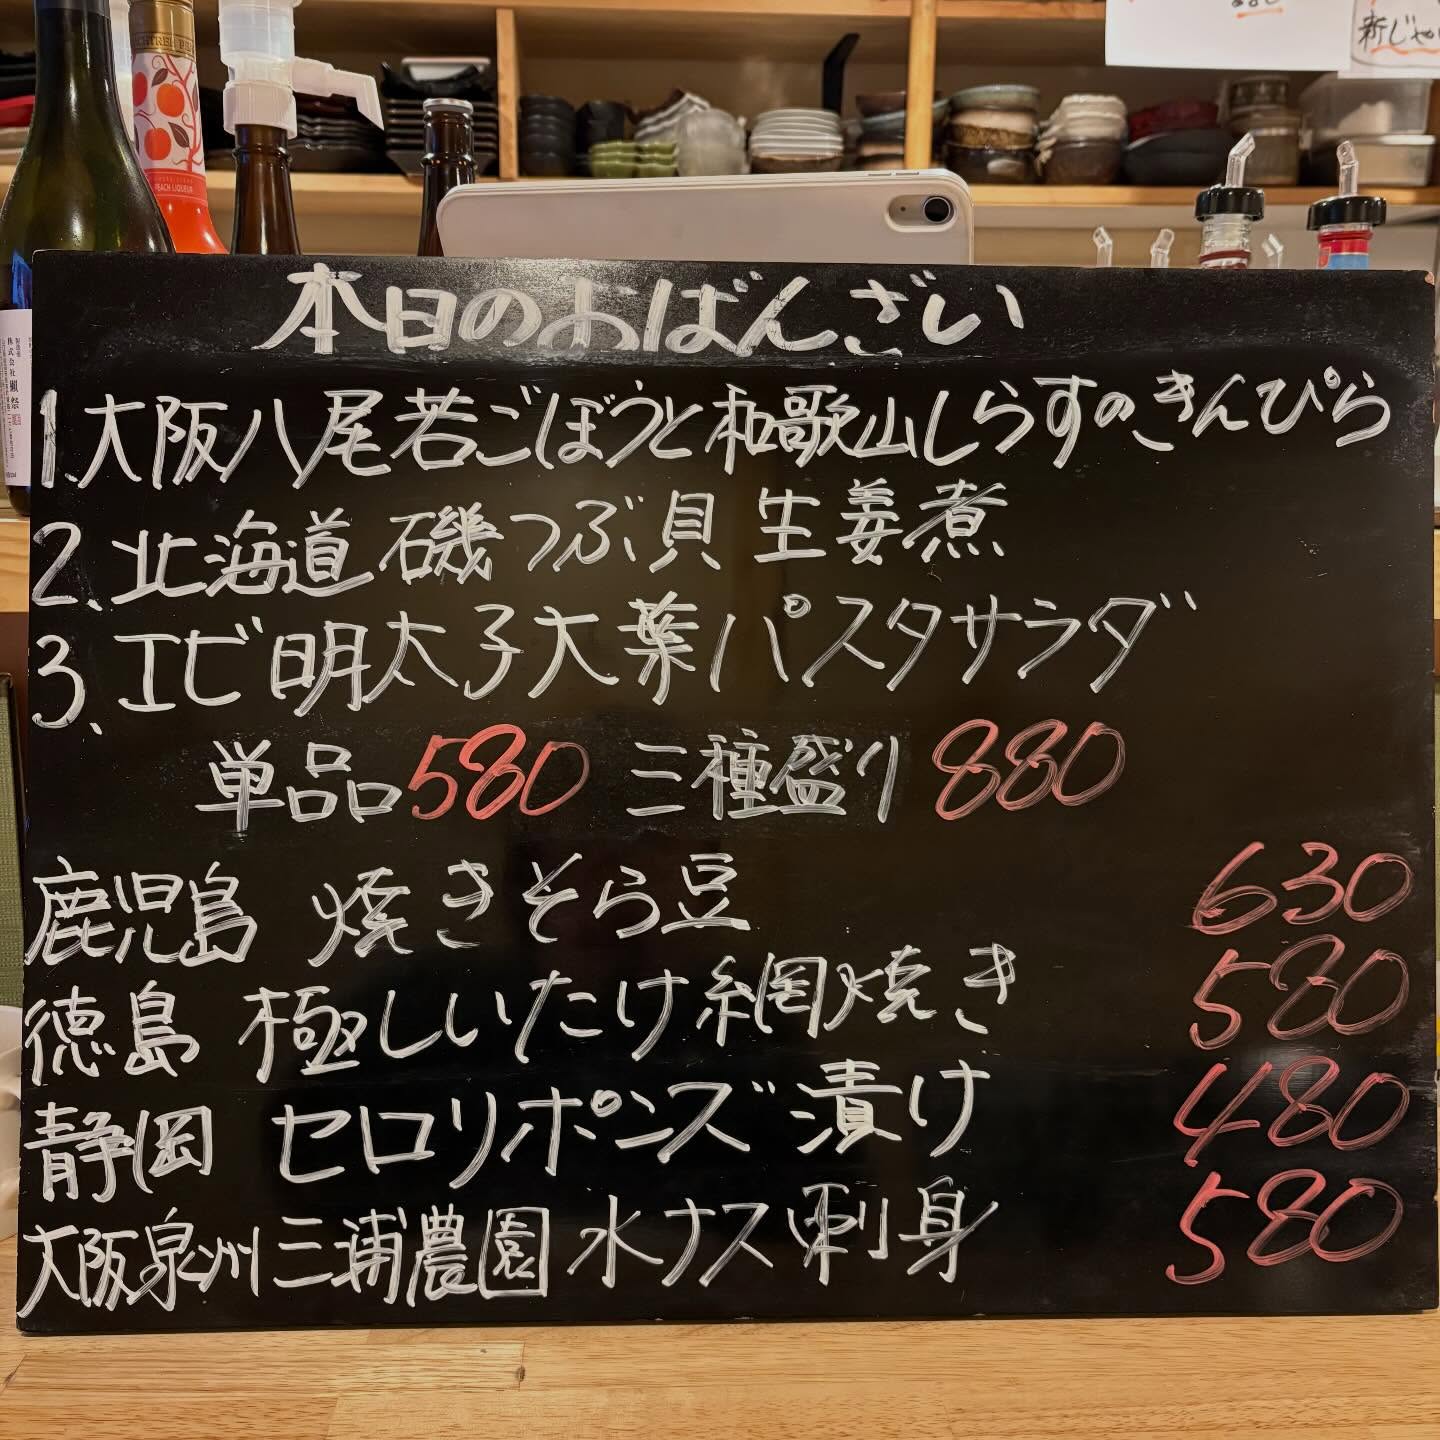 新じゃが
PEACH LIQUEUR
株式会社 獺祭
本日のおばんざい
1.大阪八尾若ごぼうと和歌山しらすのきんぴら
2.北海道 磯つぶ貝 生姜煮
3.エビ明太子大葉パスタサラダ
単品580 三種盛り880
鹿児島 焼きそら豆 630
徳島 極しいたけ網焼き 580
静岡 セロリポンズ漬け 480
大阪泉州三浦農園 水ナス刺身 580